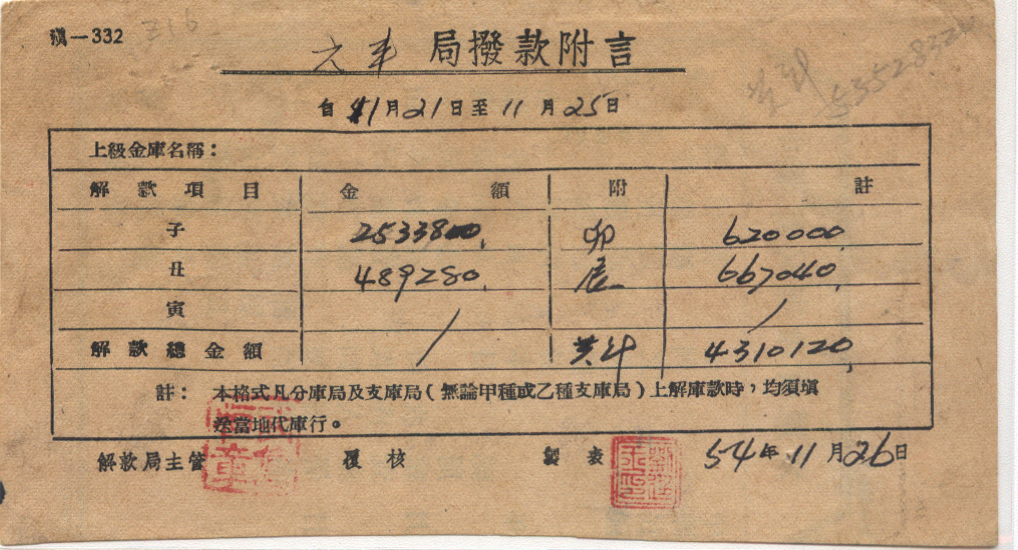 一332 Z16
局撥款附言
自11月21日至11月25日
上級金庫名稱：
解款項目 金額 附註
子 2533800. 卯 620000.
丑 489280. 辰 667040.
寅 / /
解款總金額 / 共計 4310120.
註： 本格式凡分庫局及支庫局（無論甲種或乙種支庫局）上解庫款時，均須填
送當地代庫行。
解款局主管 覆核 製表 54年11月26日